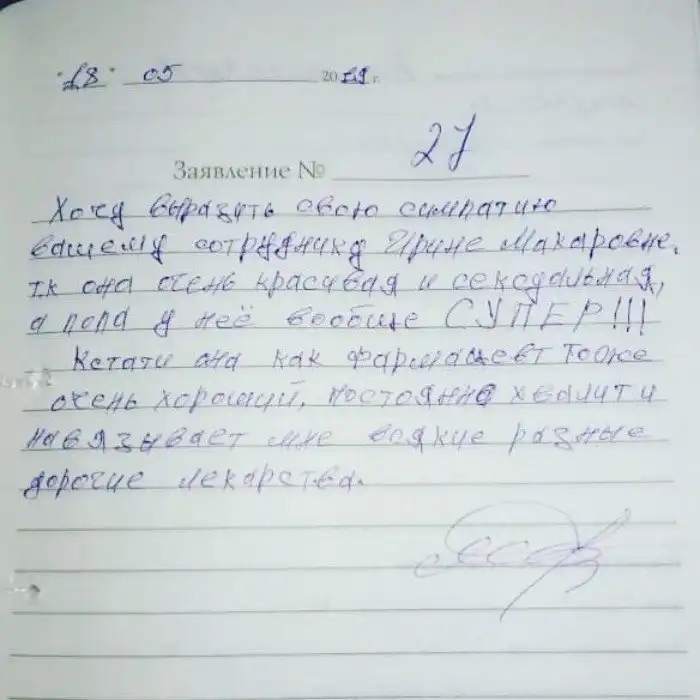 "18" 05 2019 г.
Заявление № 27
Хочу выразить свою симпатию
вашему сотруднику Ирине Макаровне,
т.к она очень красивая и сексуальная,
а попа у неё вообще СУПЕР!!!
Кстати она как фармацевт тоже
очень хороший, постоянно хвалит и
навязывает мне всякие разные
дорогие лекарства.